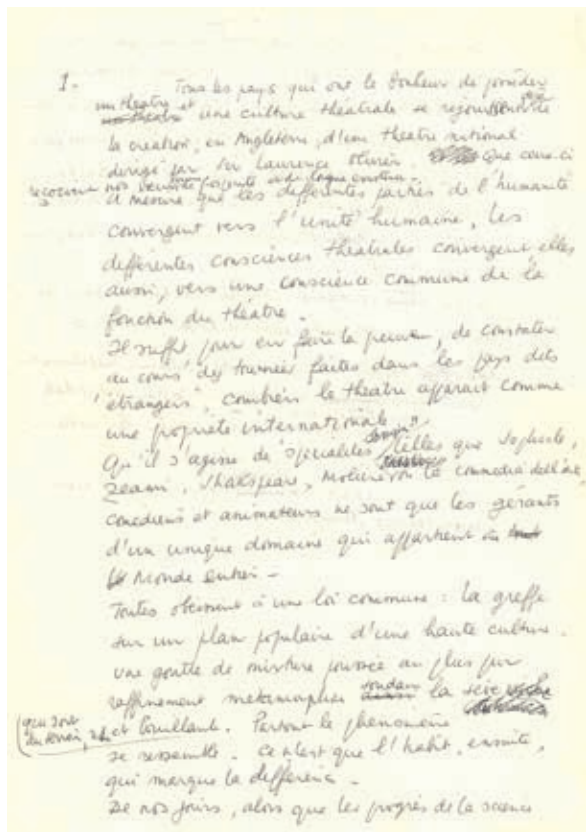 1. Tous les pays qui ont le bonheur de posséder
un théatre et une culture théatrale se réjouissent de
la création, en Angleterre, d'un théatre national
dirigé par Sir Laurence Olivier. Que ceux-ci
reçoivent nos
A mesure que les différentes parties de l'humanité
convergent vers l'unité humaine, les
différentes consciences théatrales convergent, elles
aussi, vers une conscience commune de la
fonction du théatre.
Il suffit pour en faire la preuve, de constater
au cours des tournées faites dans les pays dits
"étrangers", combien le théatre apparait comme
une propriété internationale.
Qu'il s'agisse de "spécialités telles que Sophocle,
Zeami, Shakspeare, Molière ou la commedia dell'arte,
comédiens et animateurs ne sont que les gérants
d'un unique domaine qui appartient au
Monde entier -
Toutes obéissent à une loi commune : la greffe
sur un plan populaire d'une haute culture.
Une goutte de mixture poussée au plus pur
raffinement métamorphose soudain la sève
qui sort
du terroir,
et bouillante. Partout le phénomène
se ressemble. Ce n'est que l'habit, ensuite,
qui marque la différence -
De nos jours, alors que les progrès de la science